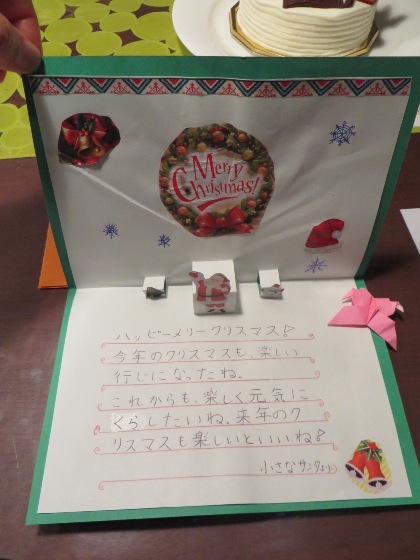 Merry
Christmas!
ハッピーメリークリスマス!
今年のクリスマスも、楽しい
行じになったね。
これからも、楽しく元気に
くらしたいね。来年のク
リスマスも楽しいといいね!
小さなサンタより